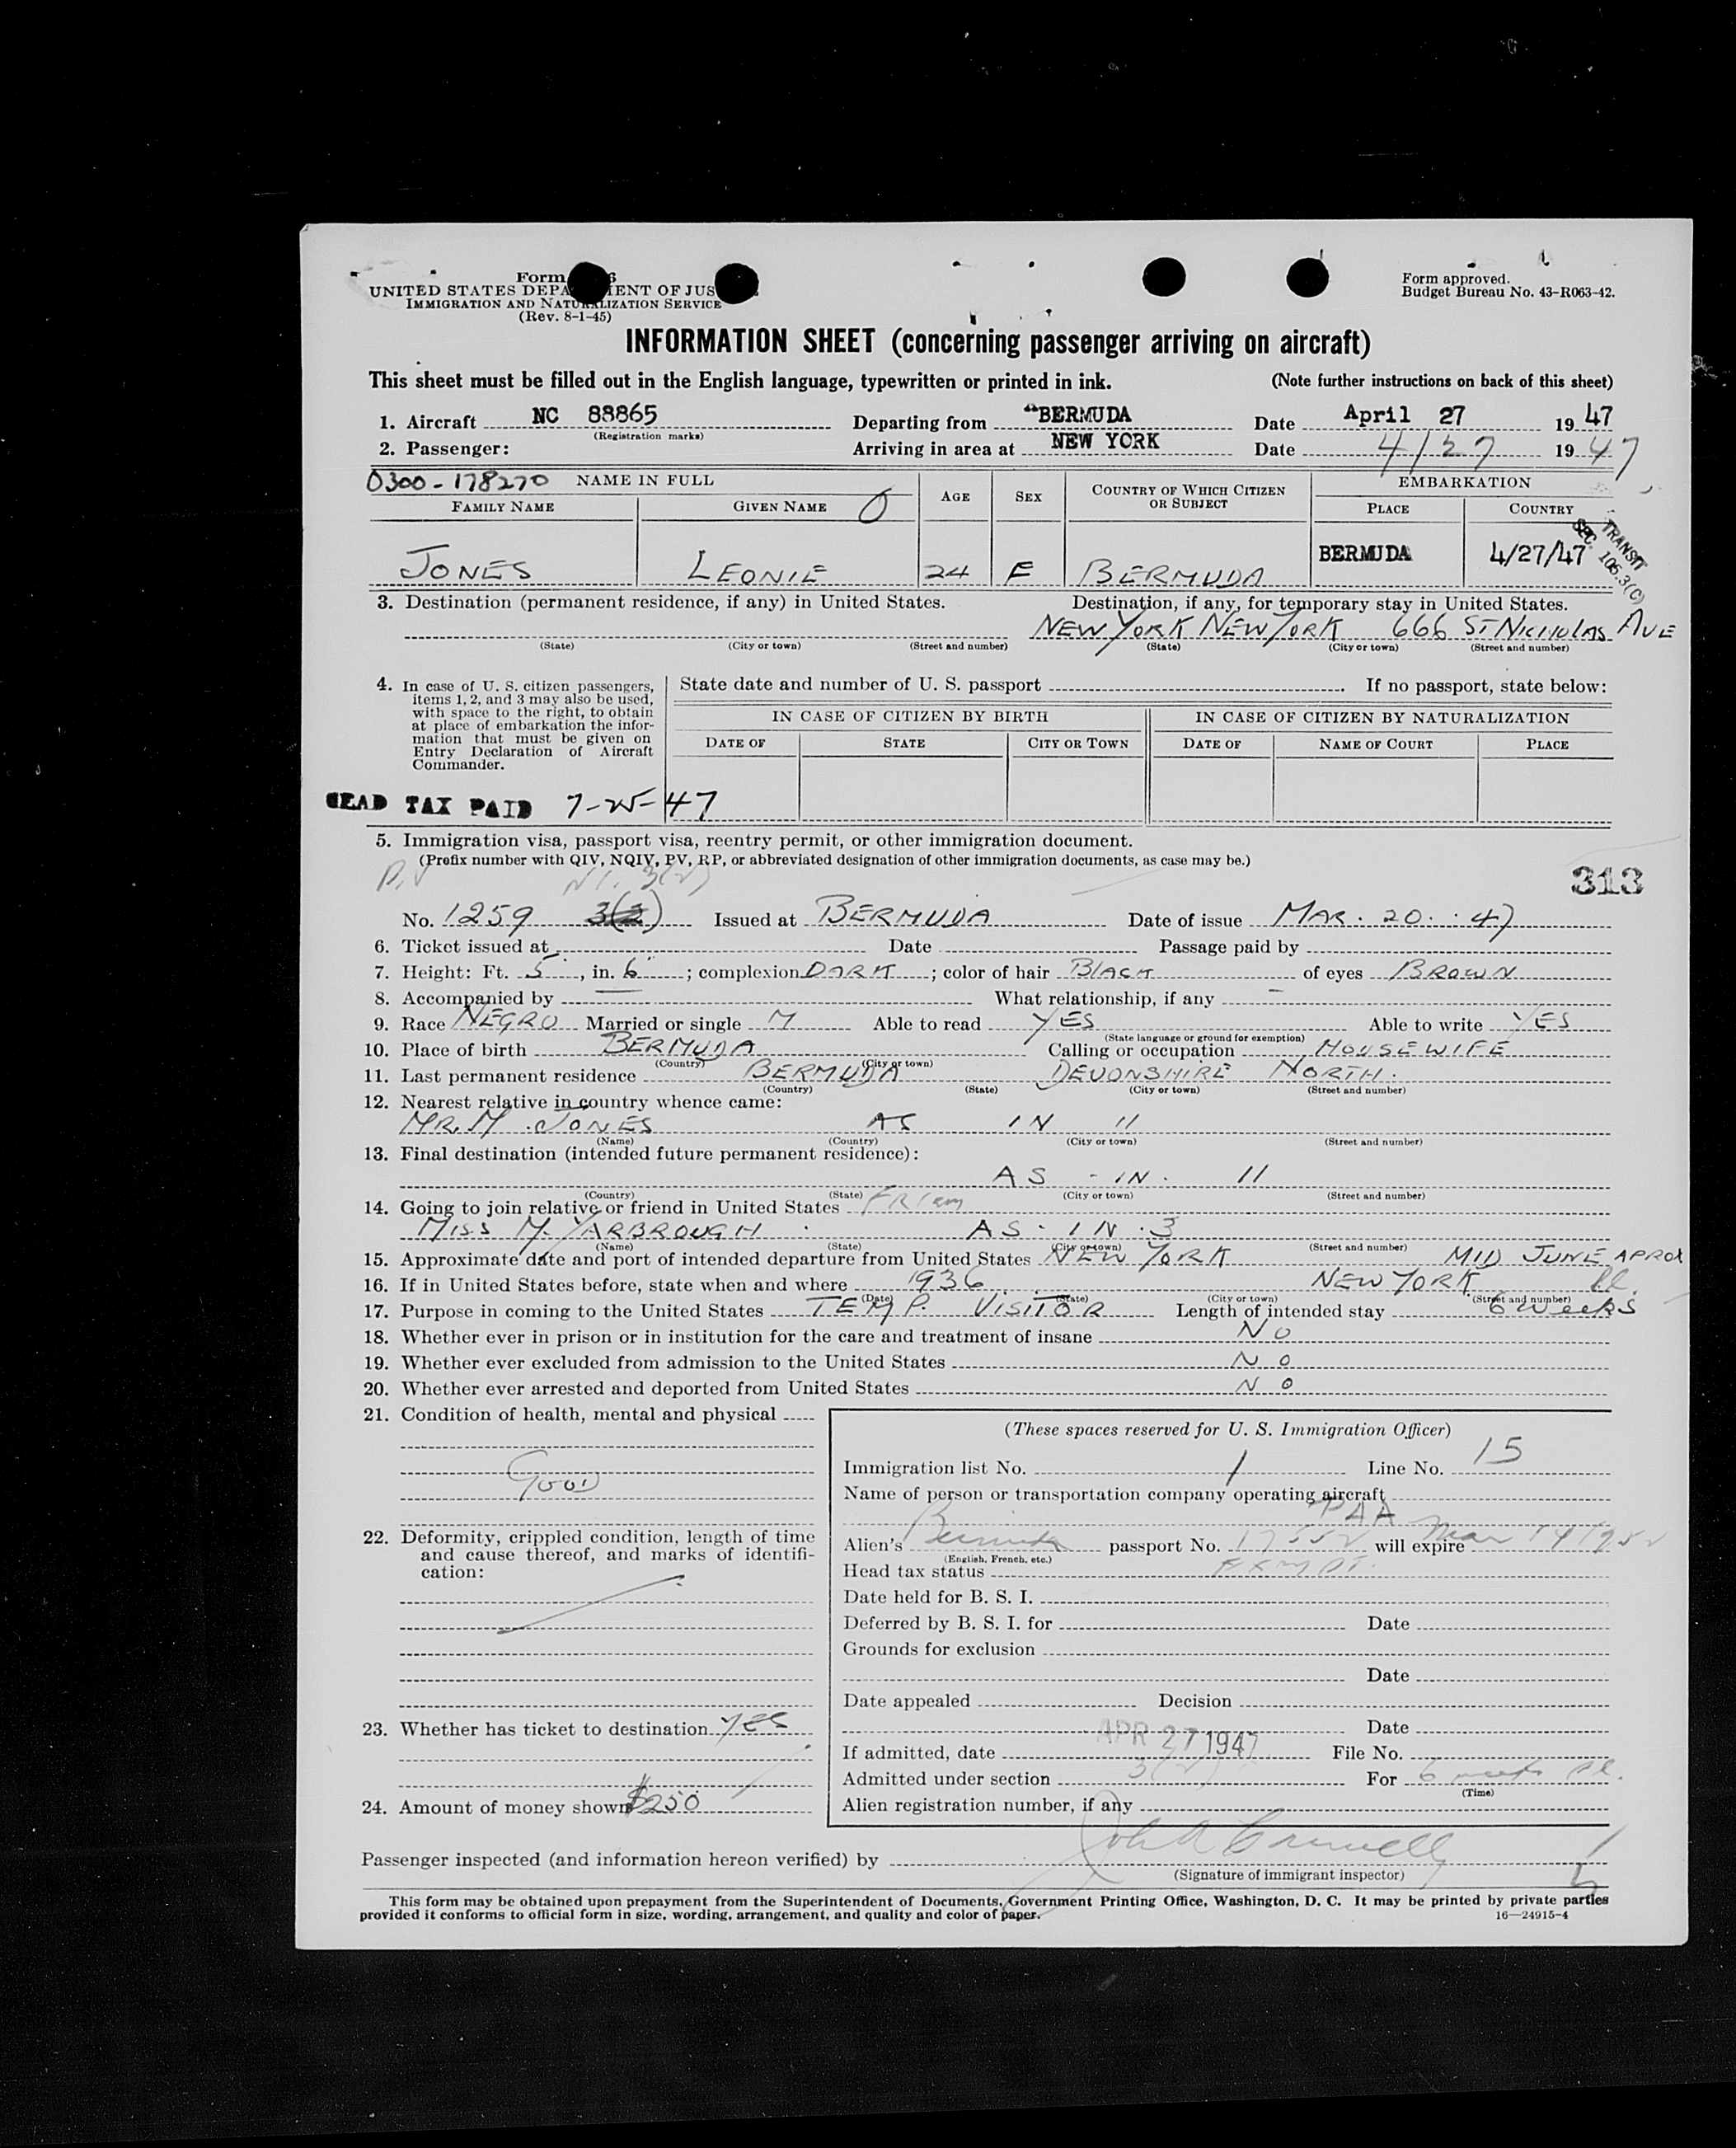 Form
UNITED STATES DEPA MENT OF JUS
IMMIGRATION AND NATURALIZATION SERVICE
(Rev. 8-1-45)
Form approved.
Budget Bureau No. 43-R063-42.
INFORMATION SHEET (concerning passenger arriving on aircraft)
This sheet must be filled out in the English language, typewritten or printed in ink. (Note further instructions on back of this sheet)
1. Aircraft NC 88865 Departing from BERMUDA Date April 27 1947
(Registration marks)
2. Passenger: Arriving in area at NEW YORK Date 4/27 1947
0300-178270 NAME IN FULL AGE SEX COUNTRY OF WHICH CITIZEN OR SUBJECT EMBARKATION
FAMILY NAME GIVEN NAME PLACE COUNTRY
TRANSIT
SEC. 106.3(C)
JONES LEONIE 24 F BERMUDA BERMUDA 4/27/47
3. Destination (permanent residence, if any) in United States. Destination, if any, for temporary stay in United States.
NEW YORK NEW YORK 666 ST NICHOLAS AVE
(State) (City or town) (Street and number) (State) (City or town) (Street and number)
4. In case of U. S. citizen passengers, items 1, 2, and 3 may also be used, with space to the right, to obtain at place of embarkation the information that must be given on Entry Declaration of Aircraft Commander.
State date and number of U. S. passport If no passport, state below:
IN CASE OF CITIZEN BY BIRTH IN CASE OF CITIZEN BY NATURALIZATION
DATE OF STATE CITY OR TOWN DATE OF NAME OF COURT PLACE
HEAD TAX PAID 7-25-47
5. Immigration visa, passport visa, reentry permit, or other immigration document.
(Prefix number with QIV, NQIV, PV, RP, or abbreviated designation of other immigration documents, as case may be.)
PV 3(2)
313
No. 1259 3(2) Issued at BERMUDA Date of issue MAR. 20. 47
6. Ticket issued at Date Passage paid by
7. Height: Ft. 5, in. 6; complexion DARK; color of hair BLACK of eyes BROWN
8. Accompanied by — What relationship, if any —
9. Race NEGRO Married or single M Able to read YES Able to write YES
(State language or ground for exemption)
10. Place of birth BERMUDA Calling or occupation HOUSEWIFE
(Country) (City or town)
11. Last permanent residence BERMUDA DEVONSHIRE NORTH.
(Country) (State) (City or town) (Street and number)
12. Nearest relative in country whence came:
MR. M. JONES AS IN 11
(Name) (Country) (City or town) (Street and number)
13. Final destination (intended future permanent residence):
AS - IN. 11
(Country) (State) (City or town) (Street and number)
14. Going to join relative or friend in United States
MISS M. YARBROUGH AS. IN. 3
(Name) (State) (City or town) (Street and number)
15. Approximate date and port of intended departure from United States NEW YORK MID JUNE APROX
16. If in United States before, state when and where 1936 NEW YORK
(Date) (State) (City or town) (Street and number)
17. Purpose in coming to the United States TEMP. VISITOR Length of intended stay 6 weeks
18. Whether ever in prison or in institution for the care and treatment of insane NO
19. Whether ever excluded from admission to the United States NO
20. Whether ever arrested and deported from United States NO
21. Condition of health, mental and physical
GOOD
22. Deformity, crippled condition, length of time and cause thereof, and marks of identification:
23. Whether has ticket to destination YES
24. Amount of money shown $250
(These spaces reserved for U. S. Immigration Officer)
Immigration list No. 1 Line No. 15
Name of person or transportation company operating aircraft
PAA
Alien's Bermuda passport No. will expire Mar 14 1952
(English, French, etc.)
Head tax status EXMPT.
Date held for B. S. I.
Deferred by B. S. I. for Date
Grounds for exclusion
Date
Date appealed Decision
Date
If admitted, date APR 27 1947 File No.
Admitted under section 3(2) For 6 weeks
(Time)
Alien registration number, if any
Passenger inspected (and information hereon verified) by
(Signature of immigrant inspector)
This form may be obtained upon prepayment from the Superintendent of Documents, Government Printing Office, Washington, D. C. It may be printed by private parties
provided it conforms to official form in size, wording, arrangement, and quality and color of paper. 16—24915-4